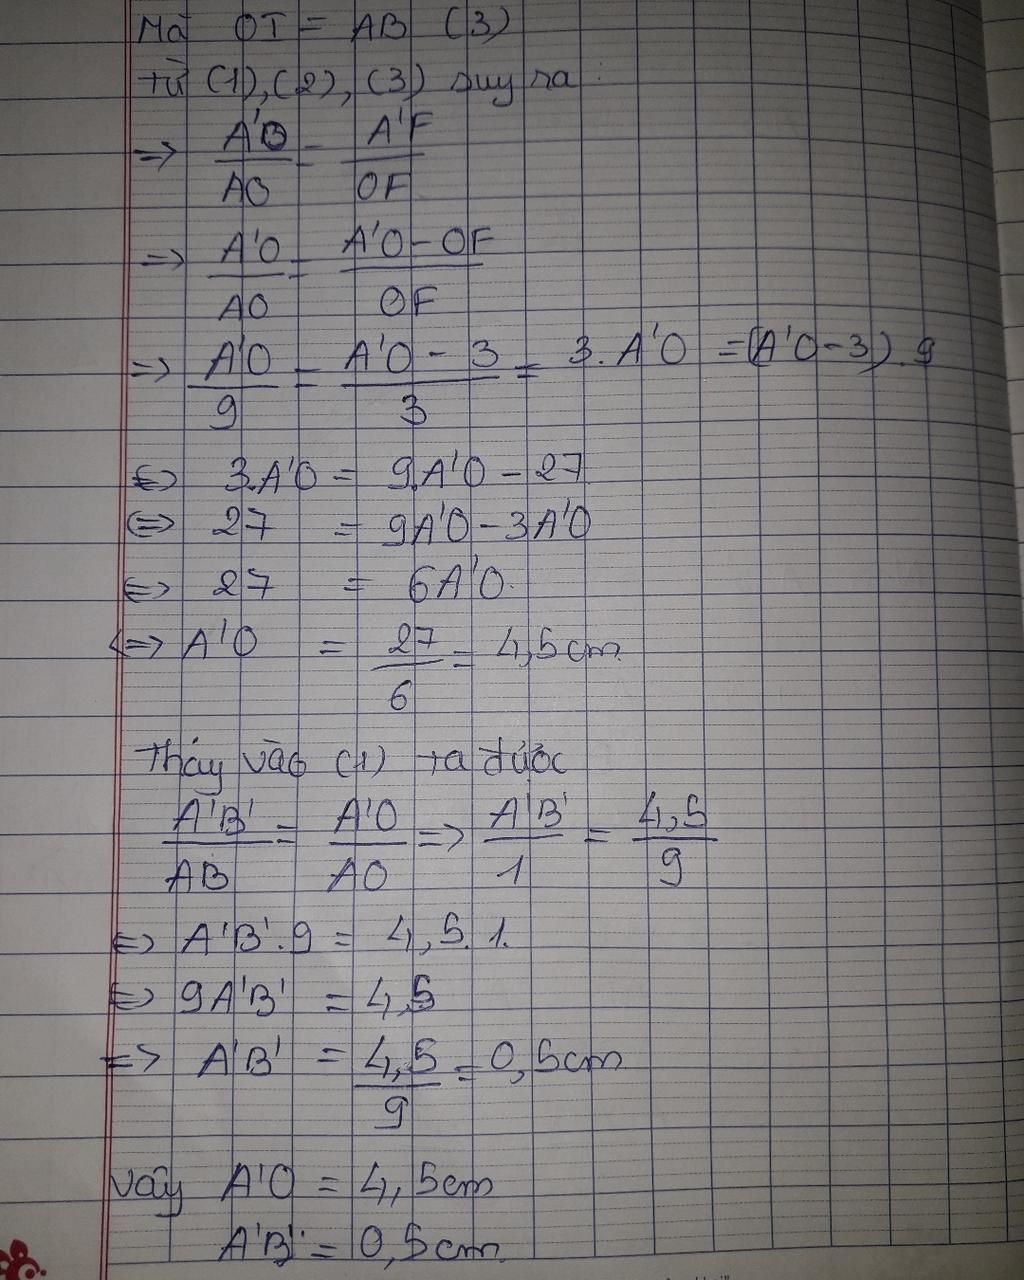 Mà OI = AB (3)
Từ (1), (2), (3) suy ra:
=> A'O/AO = A'F/OF
=> A'O/AO = A'O - OF/OF
=> A'O/9 = A'O - 3/3 = 3. A'O = (A'O - 3) . 9
<=> 3.A'O = 9.A'O - 27
<=> 27 = 9A'O - 3A'O
<=> 27 = 6A'O.
<=> A'O = 27/6 = 4,5cm.
Tháy vào (1) ta được
A'B'/AB = A'O/AO => A'B'/1 = 4,5/9
<=> A'B'.9 = 4,5.1.
<=> 9A'B' = 4,5
=> A'B' = 4,5/9 = 0,5cm
Vậy A'O = 4,5cm
A'B' = 0,5cm.